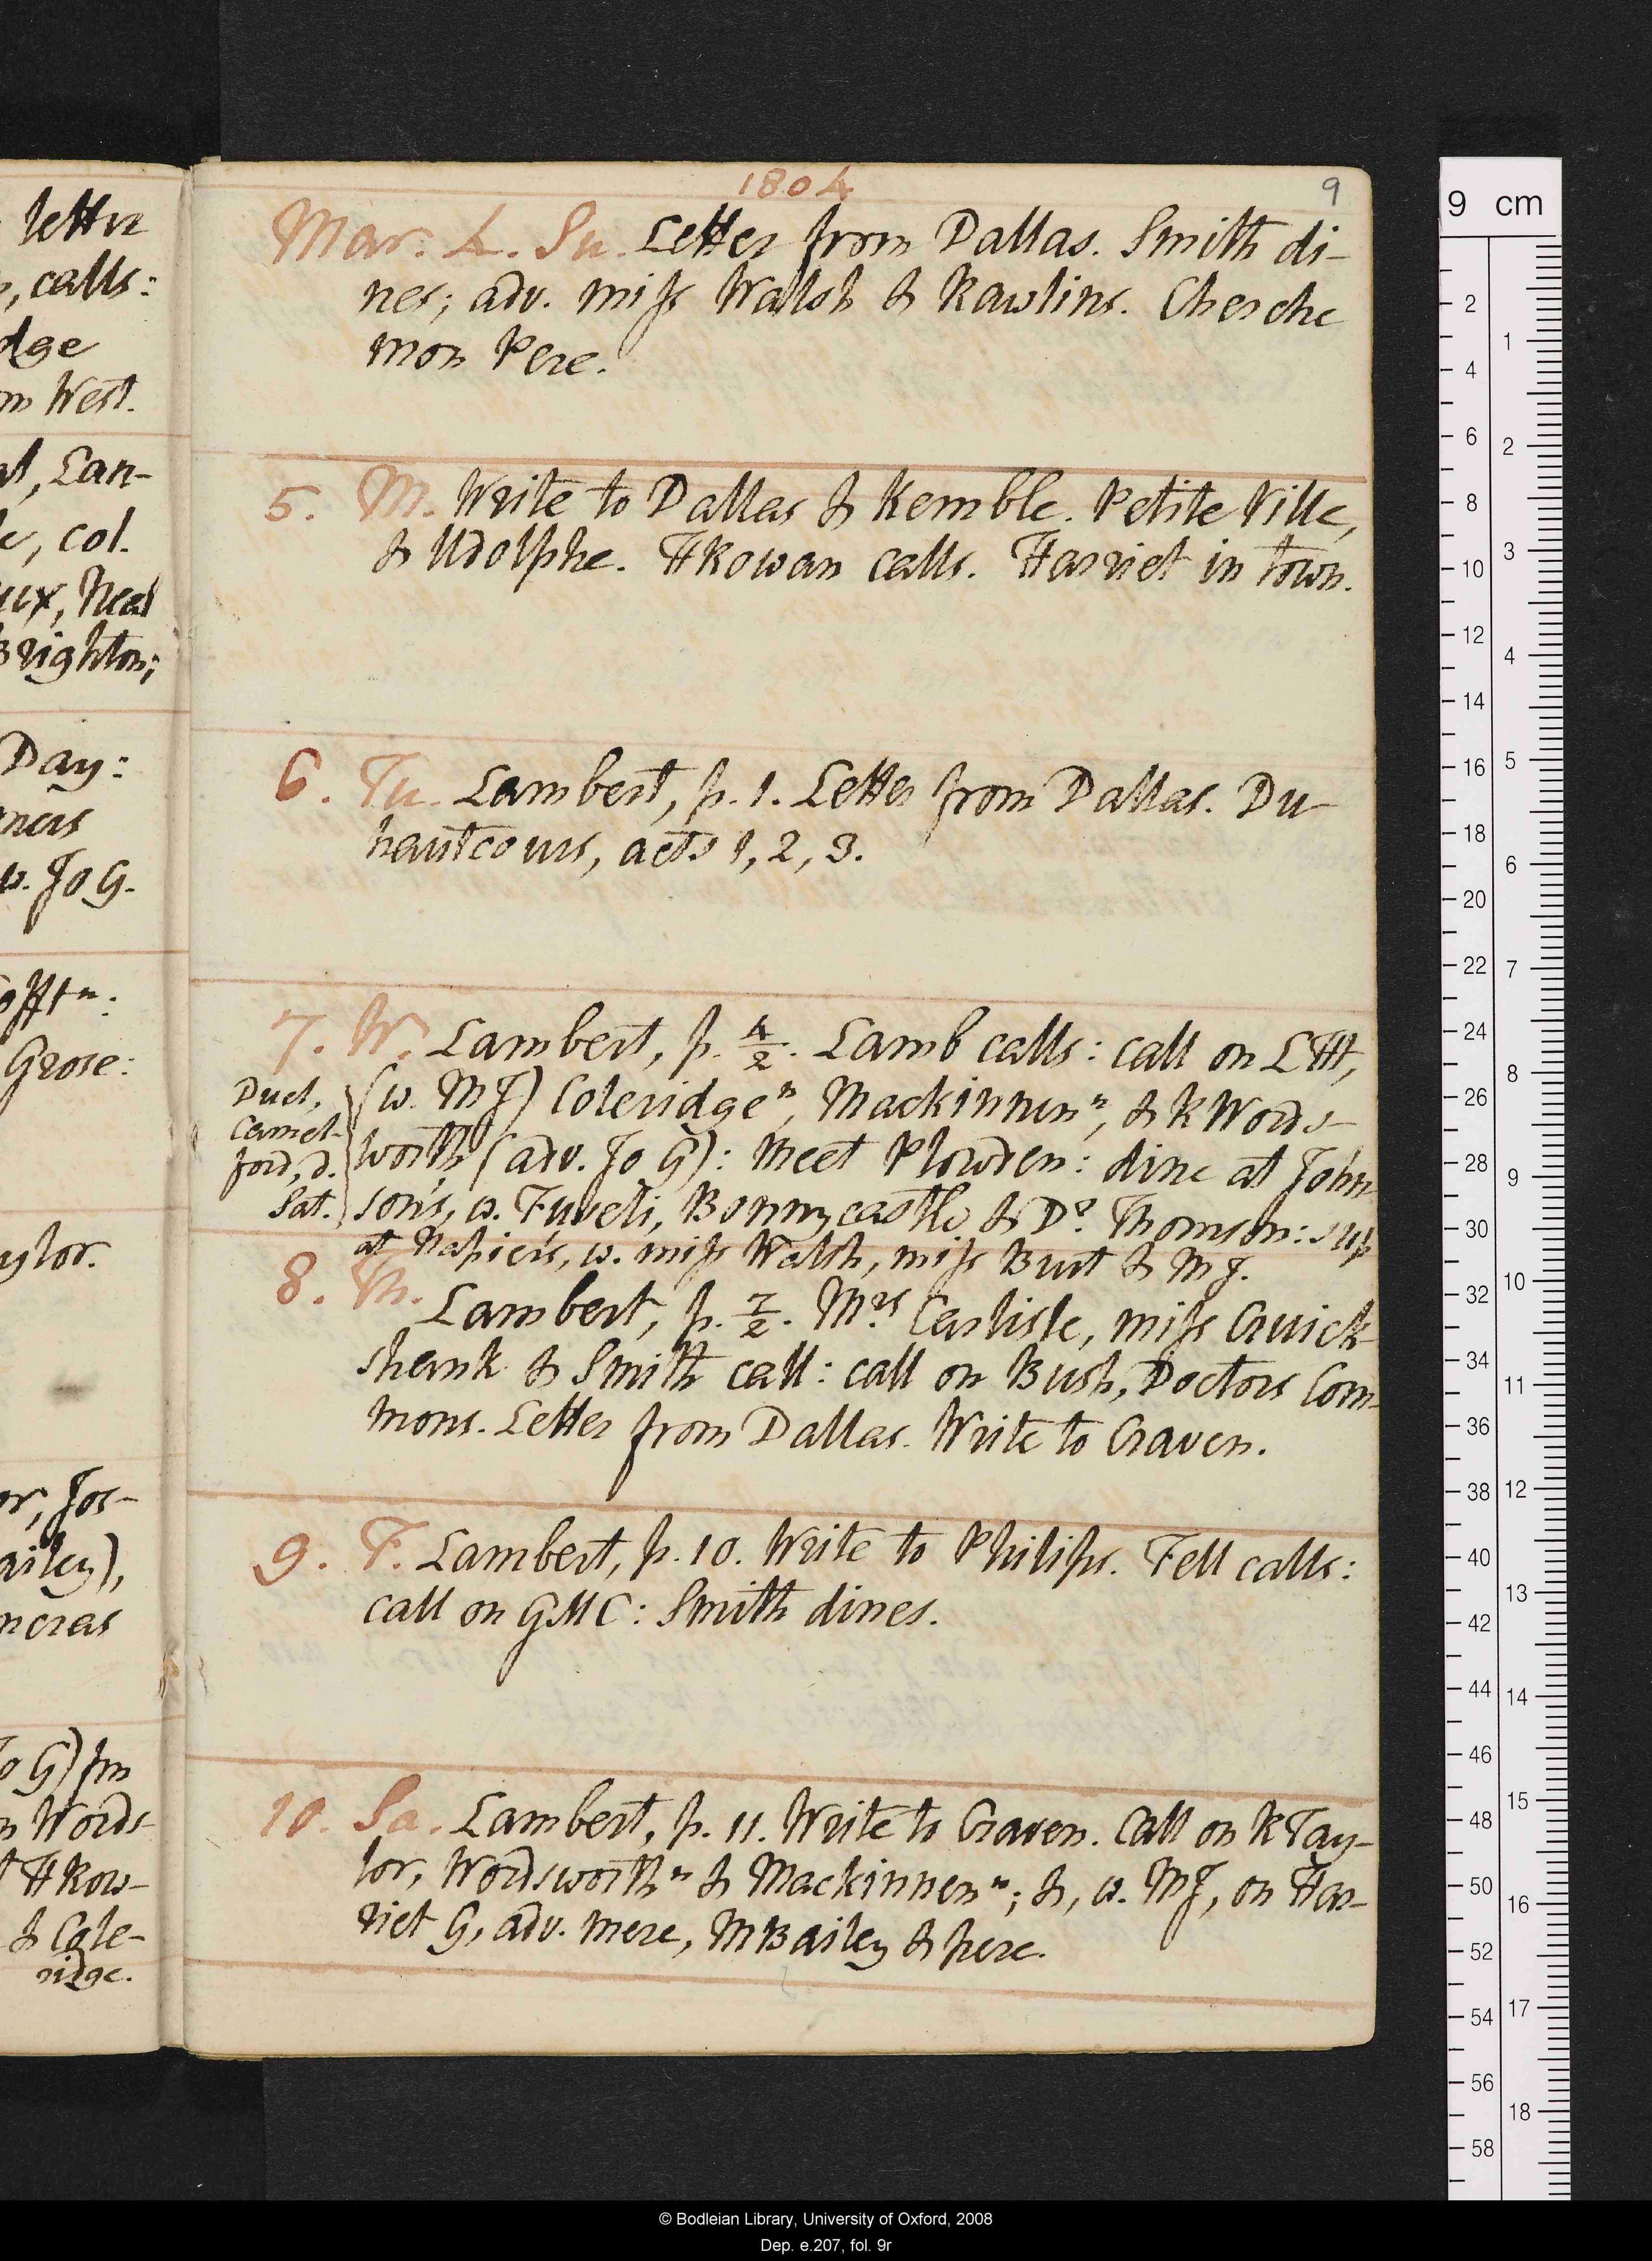 letter
, calls:
dge
m West.
al, Lan-
le, col.
ux, Neal
Brighton;
Day:
ners
w. Jo G.
Grose:
ylor.
or, Jos-
ailey),
ncras
o G) fm
n Words-
t HRow-
& Cole-
ridge.
1804
9
Mar. 4. Su. Letter from Dallas. Smith di-
nes; adv. miss Walsh & Rawlins. Cherche
mon Pere.
5. M. Write to Dallas & Kemble. Petite Ville,
& Udolphe. HRowan calls. Harriet in town.
6. Tu. Lambert, p. 1. Letter from Dallas. Du-
hautcours, acts 1, 2, 3.
7. W. Lambert, p. 4/2. Lamb calls: call on LHt,
(w. MJ) Coleridge n, Mackinnen n, & R Words-
worth (adv. Jo G): meet Plowden: dine at John-
son's, w. Fuseli, Bonnycastle & Dr. Thomson: sup
at Napier's, w. miss Walsh, miss Burt & MJ.
Duel,
Camel-
ford, d.
Sat.
8. Th. Lambert, p. 7/2. Mrs Carlisle, miss Cruick-
shank & Smith call: call on Bush, Doctors Com-
mons. Letter from Dallas. Write to Craven.
9. F. Lambert, p. 10. Write to Philips. Fell calls:
call on GMC: Smith dines.
10. Sa. Lambert, p. 11. Write to Craven. Call on R Tay-
lor, Wordsworth n & Mackinnen n; &, w. MJ, on Har-
riet G, adv. mere, M Bailey & pere.
9 cm
2
4
6
8
10
12
14
16
18
20
22
24
26
28
30
32
34
36
38
40
42
44
46
48
50
52
54
56
58
1
2
3
4
5
6
7
8
9
10
11
12
13
14
15
16
17
18
© Bodleian Library, University of Oxford, 2008
Dep. e.207, fol. 9r